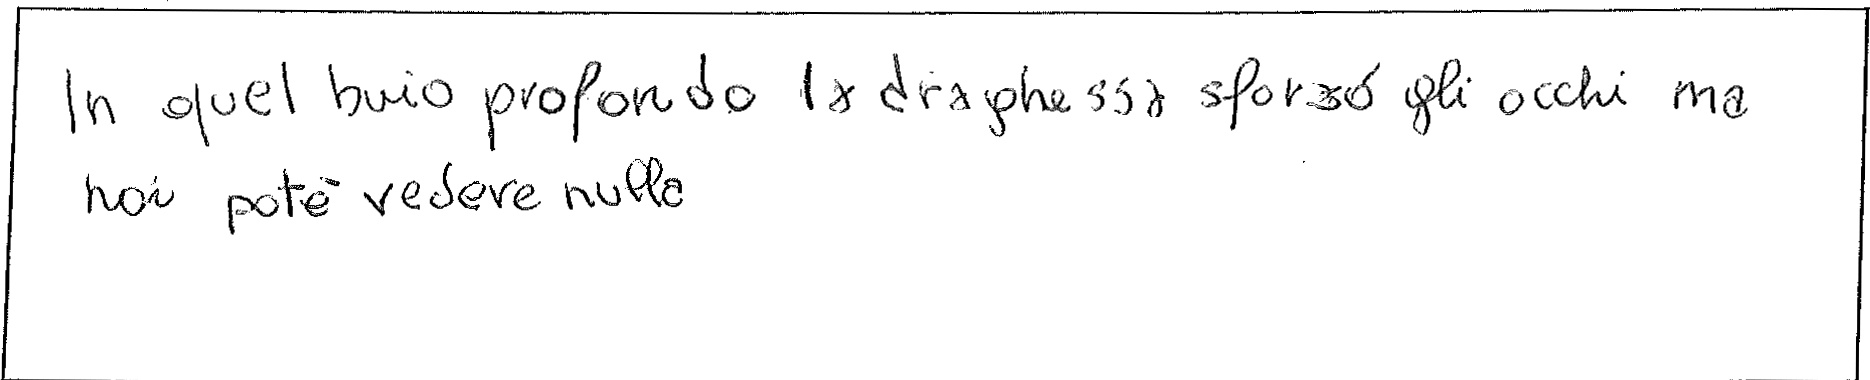 In quel buio profondo la draghessa sforzó gli occhi ma
non potè vedere nulla